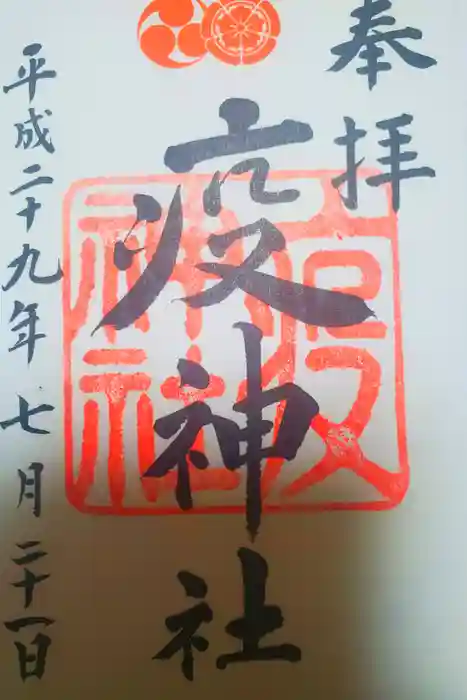 奉拝
疫神社
平成二十九年七月二十一日